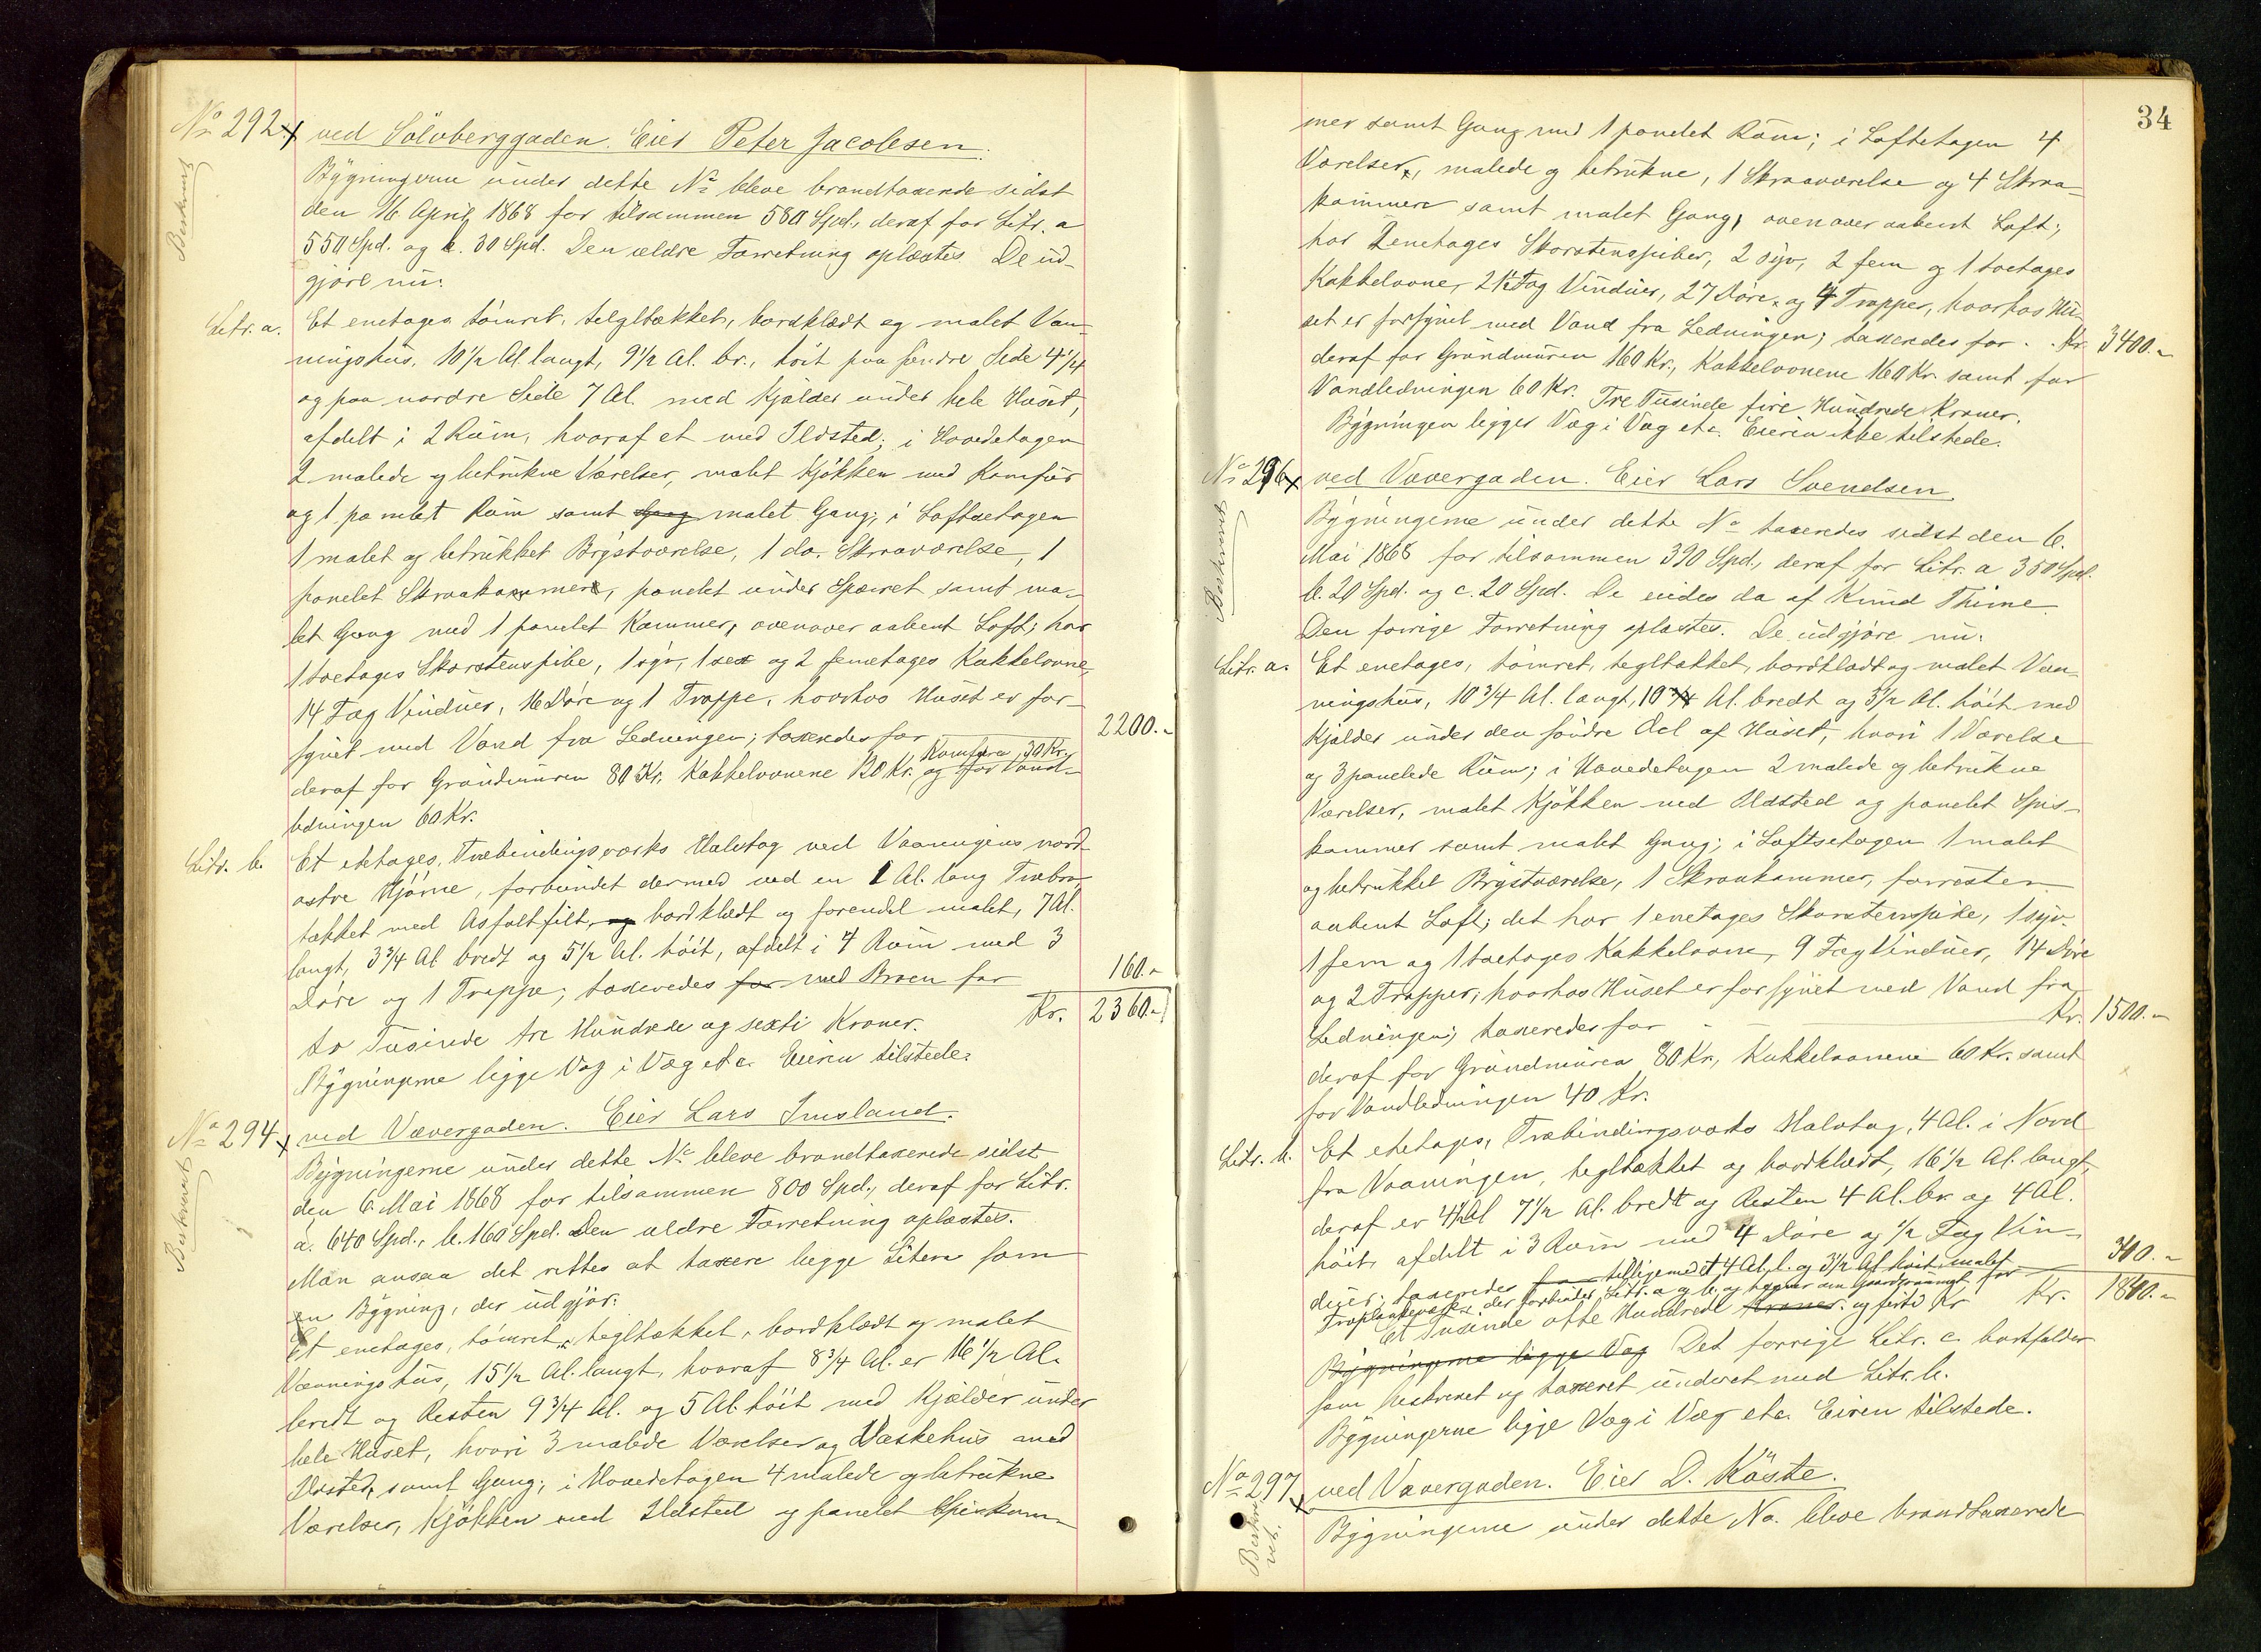 No 292 ved Sölvberggaden. Eier Peter Jacobsen.
Beskrevet
Bygningerne under dette No bleve brandtaxerede sidst
den 16 April 1868 for tilsammen 580 Spd., deraf for Litr. a
550 Spd. og b. 30 Spd. Den ældre Forretning oplæstes. De ud-
gjöre nu:
Litr. a. Et enetages tömret, teglltækket, bordklædt og malet Vaa-
ningshus, 10 1/2 Al. langt, 9 1/2 Al. br., höit paa söndre Side 4 1/4
og paa nordre Side 7 Al. med Kjælder under hele Huset,
afdelt i 2 Rum, hvoraf et med Ildsted; i Hovedetagen
2 malede og betrukne Værelser, malet Kjökken med Komfur
og 1 panelet Rum samt Gang malet Gang; i Loftsetagen
1 malet og betrukket Brystværelse, 1 do. Skraaværelse, 1
panelet Skraakammer, panelet under Sperret samt ma-
let Gang med 1 panelet Kammer, ovenover aabent Loft; har
1 toetages Skorstenspibe, 1 syv, 1 sex og 2 femetages Kakkelovne,
14 Fag Vinduer, 16 Döre og 1 Trappe, hvorhos Huset er for-
synet med Vand fra Ledningen; taxeredes for 2200.-
deraf for Grundmuren 80 Kr. Kakkelovnene 120 Kr. Komfuren 30 Kr. og for Vand-
ledningen 60 Kr.
Litr. b. Et etetages, Træbindingsværks Halvtag ved Vaaningens nord-
östre Hjörne, forbundet dermed ved en 1 Al. lang Træbro,
tækket med Asfaltfilt, og bordklædt og forendel malet, 7 Al.
langt, 3 3/4 Al. bredt og 5 1/2 Al. höit, afdelt i 4 Rum med 3
Döre og 1 Trappe; taxeredes for med Broen for 160.-
to Tusinde tre Hundrede og sexti Kroner. Kr. 2360.-
Bygningerne ligge Væg i Væg etc. Eieren tilstede.
No 294 ved Vævergaden. Eier Lars Imsland.
Beskrevet
Bygningerne under dette No bleve brandtaxerede sidst
den 6. Mai 1868 for tilsammen 800 Spd., deraf for Litr.
a. 640 Spd., b. 160 Spd. Den ældre Forretning oplæstes.
Man ansaa det rettes at taxere begge Litera som
en Bygning, der udgjör:
Et enetages, tömret, tegltækket, bordklædt og malet
Vaaningshus, 15 1/2 Al. langt, hvoraf 8 3/4 Al. er 16 1/2 Al.
bredt og Resten 9 3/4 Al. og 5 Al. höit med Kjælder under
hele Huset, hvori 3 malede Værelser og Vaskehus med
Ildsted, samt Gang; i Hovedetagen 4 malede og betrukne
Værelser, Kjökken med Ildsted og panelet Spiskam-
34
mer samt Gang med 1 panelet Rum; i Loftetagen 4
Værelser, malede og betrukne, 1 Skraaværelse og 4 Skraa-
kammere samt malet Gang, ovenover aabent Loft;
har 2 enetages Skorstenspiber, 2 syv, 2 fem og 1 toetages
Kakkelovne, 21 Fag Vinduer, 27 Döre og 4 Trapper, hvorhos Hu-
set er forsynet med Vand fra Ledningen; taxeredes for . . Kr. 3400.-
deraf for Grundmuren 160 Kr., Kakkelovnene 160 Kr. samt for
Vandledningen 60 Kr. Tre Tusinde fire Hundrede Kroner.
Bygningen ligger Væg i Væg etc. Eieren ikke tilstede.
No 296 ved Vævergaden. Eier Lars Svendsen.
Beskrevet
Bygningerne under dette No taxeredes sidst den 6.
Mai 1868 for tilsammen 390 Spd., deraf for Litr. a 350 Spd.
b. 20 Spd. og c. 20 Spd. De eiedes da af Knud Thime.
Den forrige Forretning oplæstes. De udgjöre nu:
Litr. a. Et enetages, tömret, tegltækket, bordklædt og malet Vaa-
ningshus, 10 3/4 Al. langt, 10 3/4 Al. bredt og 3 1/2 Al. höit med
Kjælder under den söndre Del af Huset, hvori 1 Værelse
og 3 panelede Rum; i Hovedetagen 2 malede og betrukne
Værelser, malet Kjökken med Ildsted og panelet Spis-
kammer samt malet Gang; i Loftsetagen 1 malet
og betrukket Brystværelse, 1 Skraakammer, forresten
aabent Loft; det har 1 enetages Skorstenspibe, 1 syv-
1 fem og 1 toetages Kakkelovne, 9 Fag Vinduer, 14 Döre
og 2 Trapper; hvorhos Huset er forsynet med Vand fra
Ledningen; taxeredes for Kr. 1500.-
deraf for Grundmuren 80 Kr., Kakkelovnene 60 Kr. samt
for Vandledningen 40 Kr.
Litr. b. Et etetages, Træbindingsværks Halvtag, 4 Al. i Nord
fra Vaaningen, tegltækket og bordklædt, 16 1/2 Al. langt,
deraf er 4 1/2 Al 7 1/2 Al. bredt og Resten 4 Al. br. og 4 Al.
höit, afdelt i 3 Rum med 4 Döre og 1/2 Fag Vin-
duer; taxeredes for tilligemed et 4 Al. l. og 3 1/2 Al höit, malet 340.-
Træplankeværk, der forbinder Litr. a og b. og lægger om Gaardsrummet for
Et Tusinde otte Hundrede Kroner. og firti Kr Kr. 1840.-
Bygningerne ligge Væg Det forrige Litr. c. bortfalder
som beskrevet og taxeret underet med Litr. b.
Bygningerne ligge Væg i Væg etc. Eieren tilstede.
No 297 ved Vævergaden. Eier D. Köste.
Beskre-
vet.
Bygningerne under dette No. bleve brandtaxerede